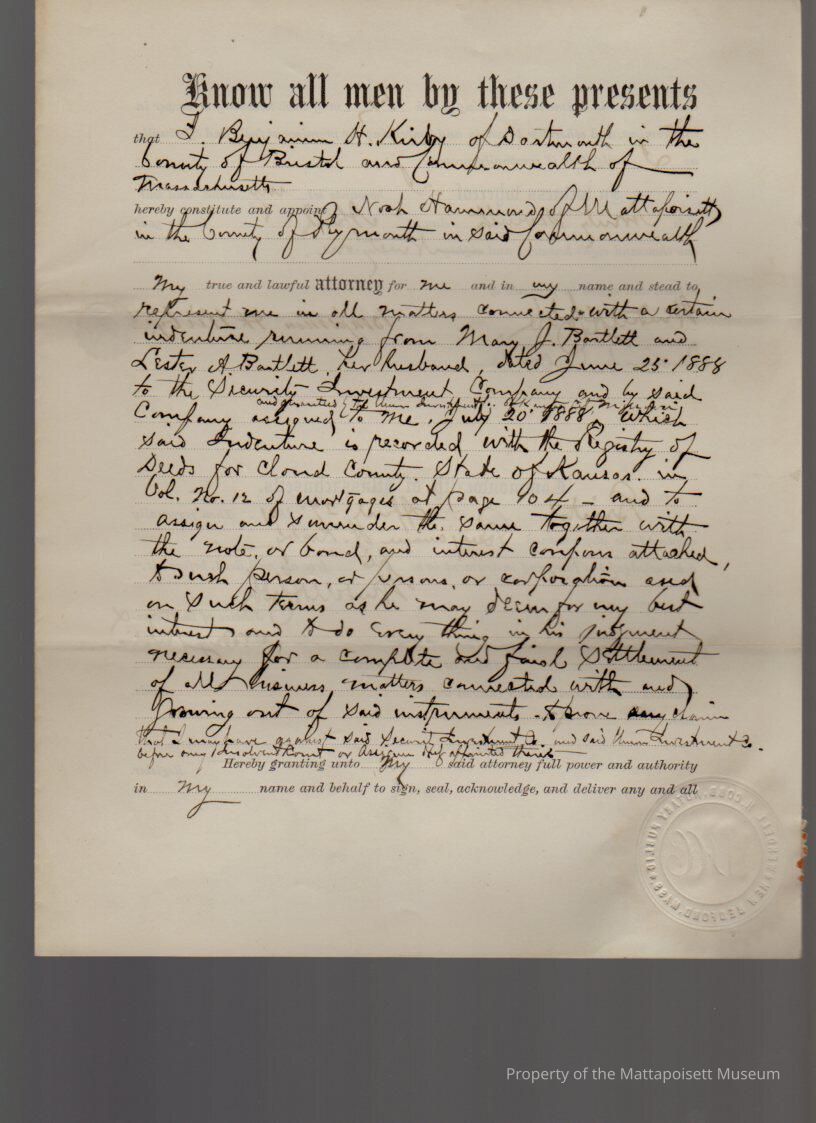 Know all men by these presents
that I, Benjamin H. Kirby of Dartmouth in the
County of Bristol and Commonwealth of
Massachusetts
hereby constitute and appoint Noah Hammond of Mattapoisett
in the County of Plymouth in said Commonwealth
My true and lawful attorney for me and in my name and stead to
represent me in all matters connected with a certain
indenture running from Mary J. Bartlett and
Lester A Bartlett, her husband, dated June 25 1888
to the Security Investment Company and by said
and guaranteed by the Union Investment Co.
Company assigned to me, July 20 1888, which
said Indenture is recorded with the Registry of
Deeds for Cloud County. State of Kansas. in
Vol. No. 12 of mortgages at page 104 - and to
assign and surrender the same together with
the note, or bond, and interest coupons attached,
to such person, or persons, or corporation and
on such terms as he may deem for my best
interest and to do every thing in his judgment
necessary for a complete and final settlement
of all business matters connected with and
growing out of said instruments. to prove any claim
that I may have against said Security Investment Co. and said Union Investment Co.
before any Insolvent Court or Assignee
Hereby granting unto My said attorney full power and authority
in My name and behalf to sign, seal, acknowledge, and deliver any and all
Property of the Mattapoisett Museum